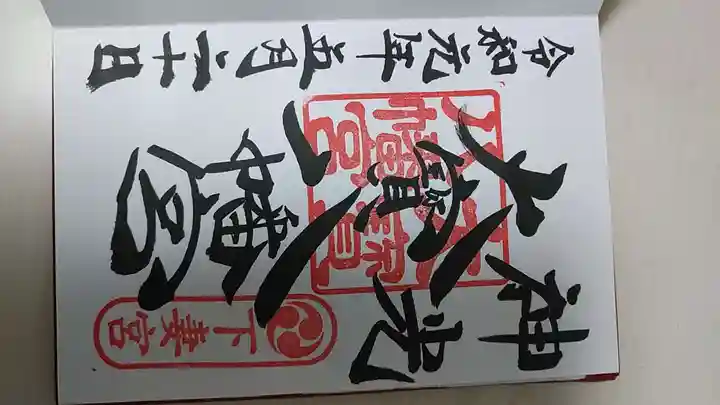 神光
大寶八幡宮
令和元年五月二十日
大寶
八幡宮
下妻宮